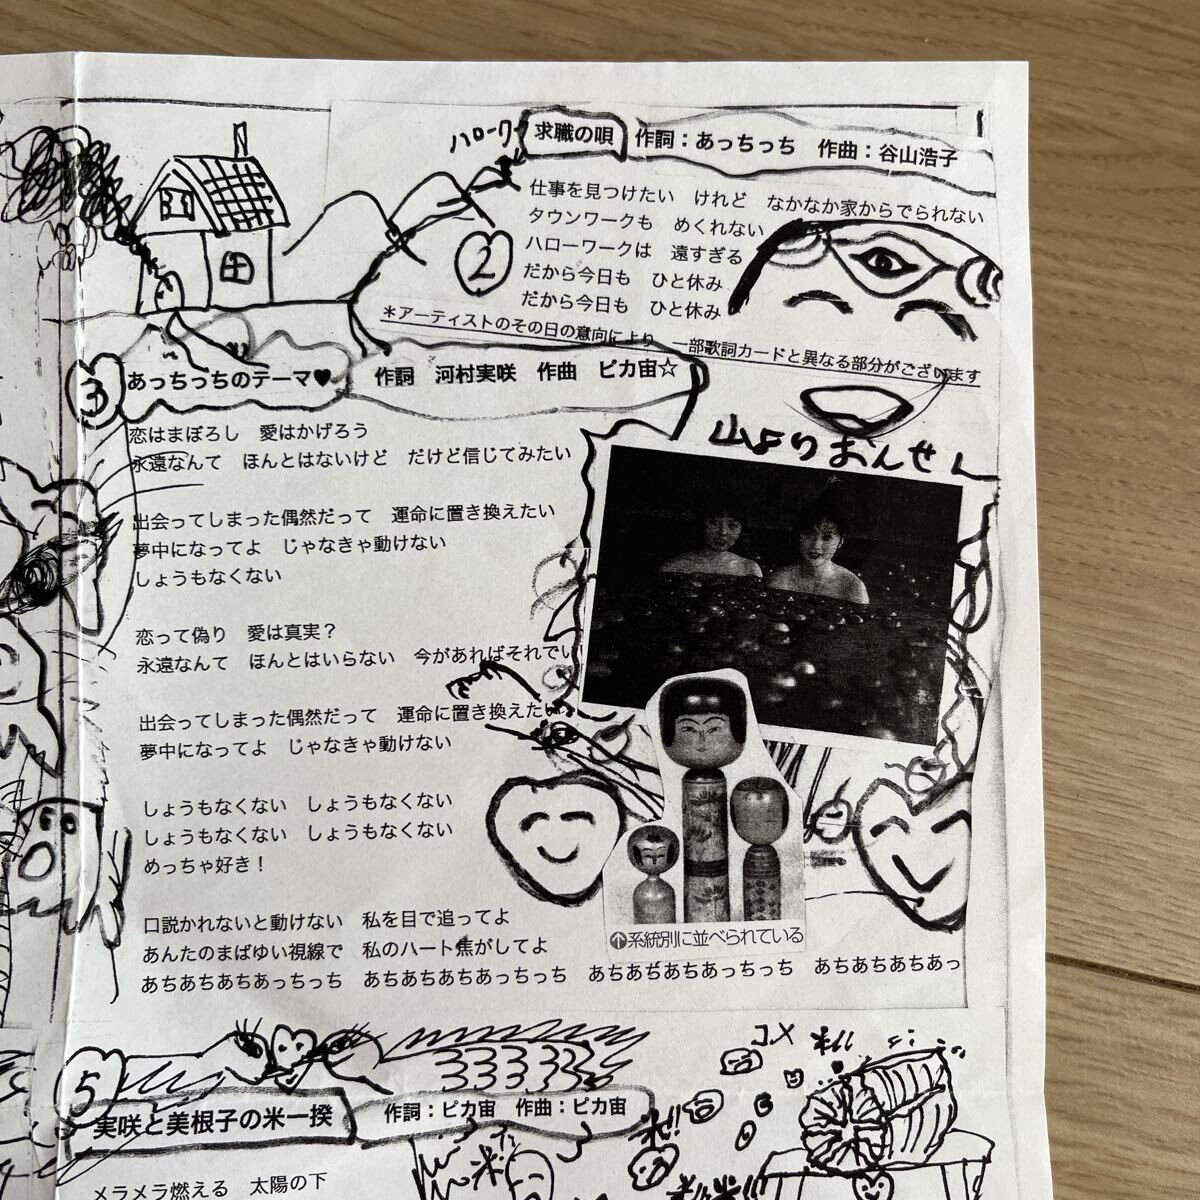 ハローワーク
求職の唄 作詞：あっちっち 作曲：谷山浩子
②
仕事を見つけたい けれど なかなか家からでられない
タウンワークも めくれない
ハローワークは 遠すぎる
だから今日も ひと休み
だから今日も ひと休み
＊アーティストのその日の意向により 一部歌詞カードと異なる部分がございます
③
あっちっちのテーマ♥ 作詞 河村実咲 作曲 ピカ宙☆
恋はまぼろし 愛はかげろう
永遠なんて ほんとはないけど だけど信じてみたい
出会ってしまった偶然だって 運命に置き換えたい
夢中になってよ じゃなきゃ動けない
しょうもなくない
恋って偽り 愛は真実？
永遠なんて ほんとはいらない 今があればそれでい
出会ってしまった偶然だって 運命に置き換えたい
夢中になってよ じゃなきゃ動けない
しょうもなくない しょうもなくない
しょうもなくない しょうもなくない
めっちゃ好き！
口説かれないと動けない 私を目で追ってよ
あんたのまばゆい視線で 私のハート焦がしてよ
あちあちあちあっちっち あちあちあちあっちっち あちあぢあちあっちっち あちあちあちあっ
山よりおんせん
↑系統別に並べられている
⑤
実咲と美根子の米一揆 作詞：ピカ宙 作曲：ピカ宙
メラメラ燃える 太陽の下
コメ
米!!